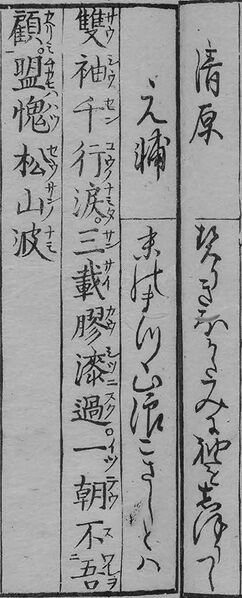 清原 契りきなかたみに袖を志ほりつゝ
元輔 末のまつ山浪こさしとハ
雙袖千行涙。三載膠漆過。一朝不吾
顧。盟愧松山波